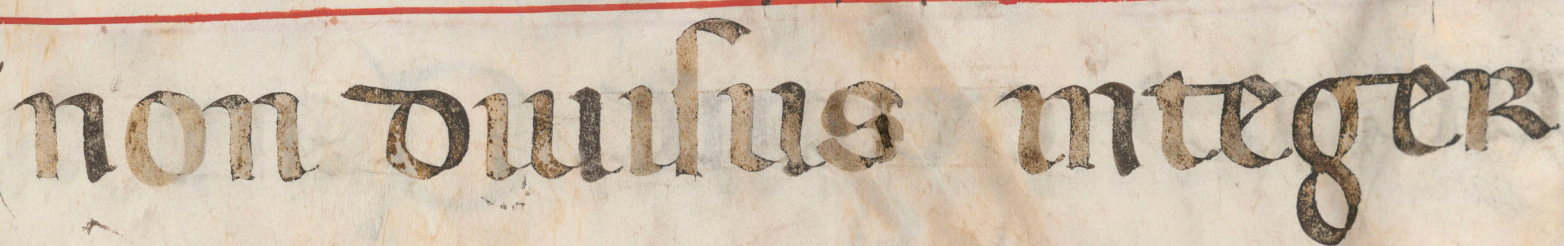 non diuisus integer